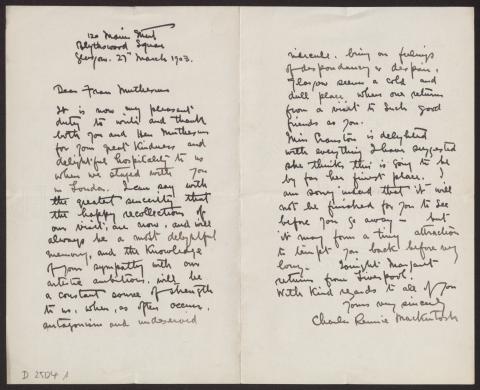 120 Mains Street
Blythswood Square
Glasgow. 27th March 1903.
Dear Frau Muthesius
It is now my pleasant
duty to write and thank
both you and Herr Muthesius
for your great kindness and
delightful hospitality to us
when we stayed with you
in London. I can say with
the greatest sincerity that
the happy recollections of
our visit, are now, and will
always be a most delightful
memory, and the knowledge
of your sympathy with our
artistic ambitions, will be
a constant source of strength
to us, when, as often occurs,
antagonism and undeserved
ridicule bring on feelings
of despondency & despair.
Glasgow seems a cold and
dull place when one returns
from a visit to such good
friends as you.
Miss Cranston is delighted
with everything I have suggested
she thinks this is going to be
by far her finest place. I
am sorry indeed that it will
not be finished for you to see
before you go away — but
it may form a tiny attraction
to tempt you back before very
long. Tonight Margaret
returns from Liverpool.
With kind regards to all of you
Yours very sincerely
Charles Rennie Mackintosh